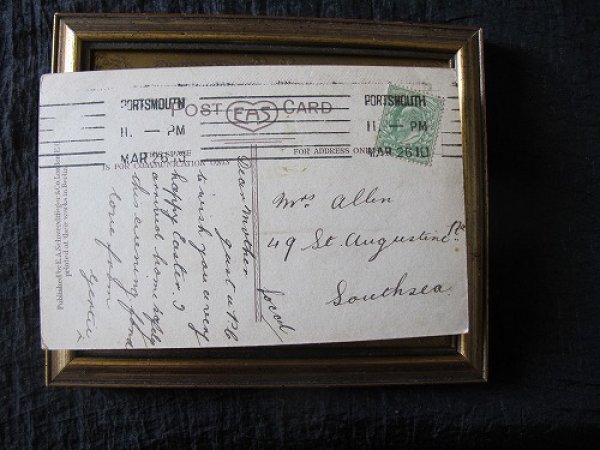 PORTSMOUTH
11. — PM
MAR 26 10
POST EAS CARD
PORTSMOUTH
11. — PM
MAR 26 10
THIS SPACE
IS FOR COMMUNICATION ONLY
FOR ADDRESS ONLY
Published by E.A.
London E.C.
printed at their works in Berlin
Dear Mother
just a P.C
to wish you a very
happy Easter I
arrived home safely
this evening
love from
Mrs Allen
49 St. Augustine
Southsea